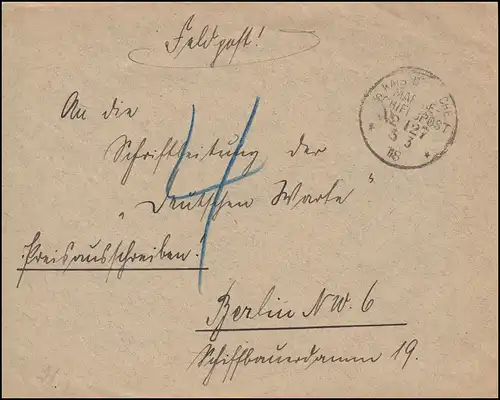 Feldpost!
KAIS. D CHE
MAR
SCHIFFSPOST
No 127
3 3
18
An die
Schriftleitung der
"Deutschen Warte"
4
Preisausschreiben!
Berlin N.W. 6
Schiffbauerdamm 19.